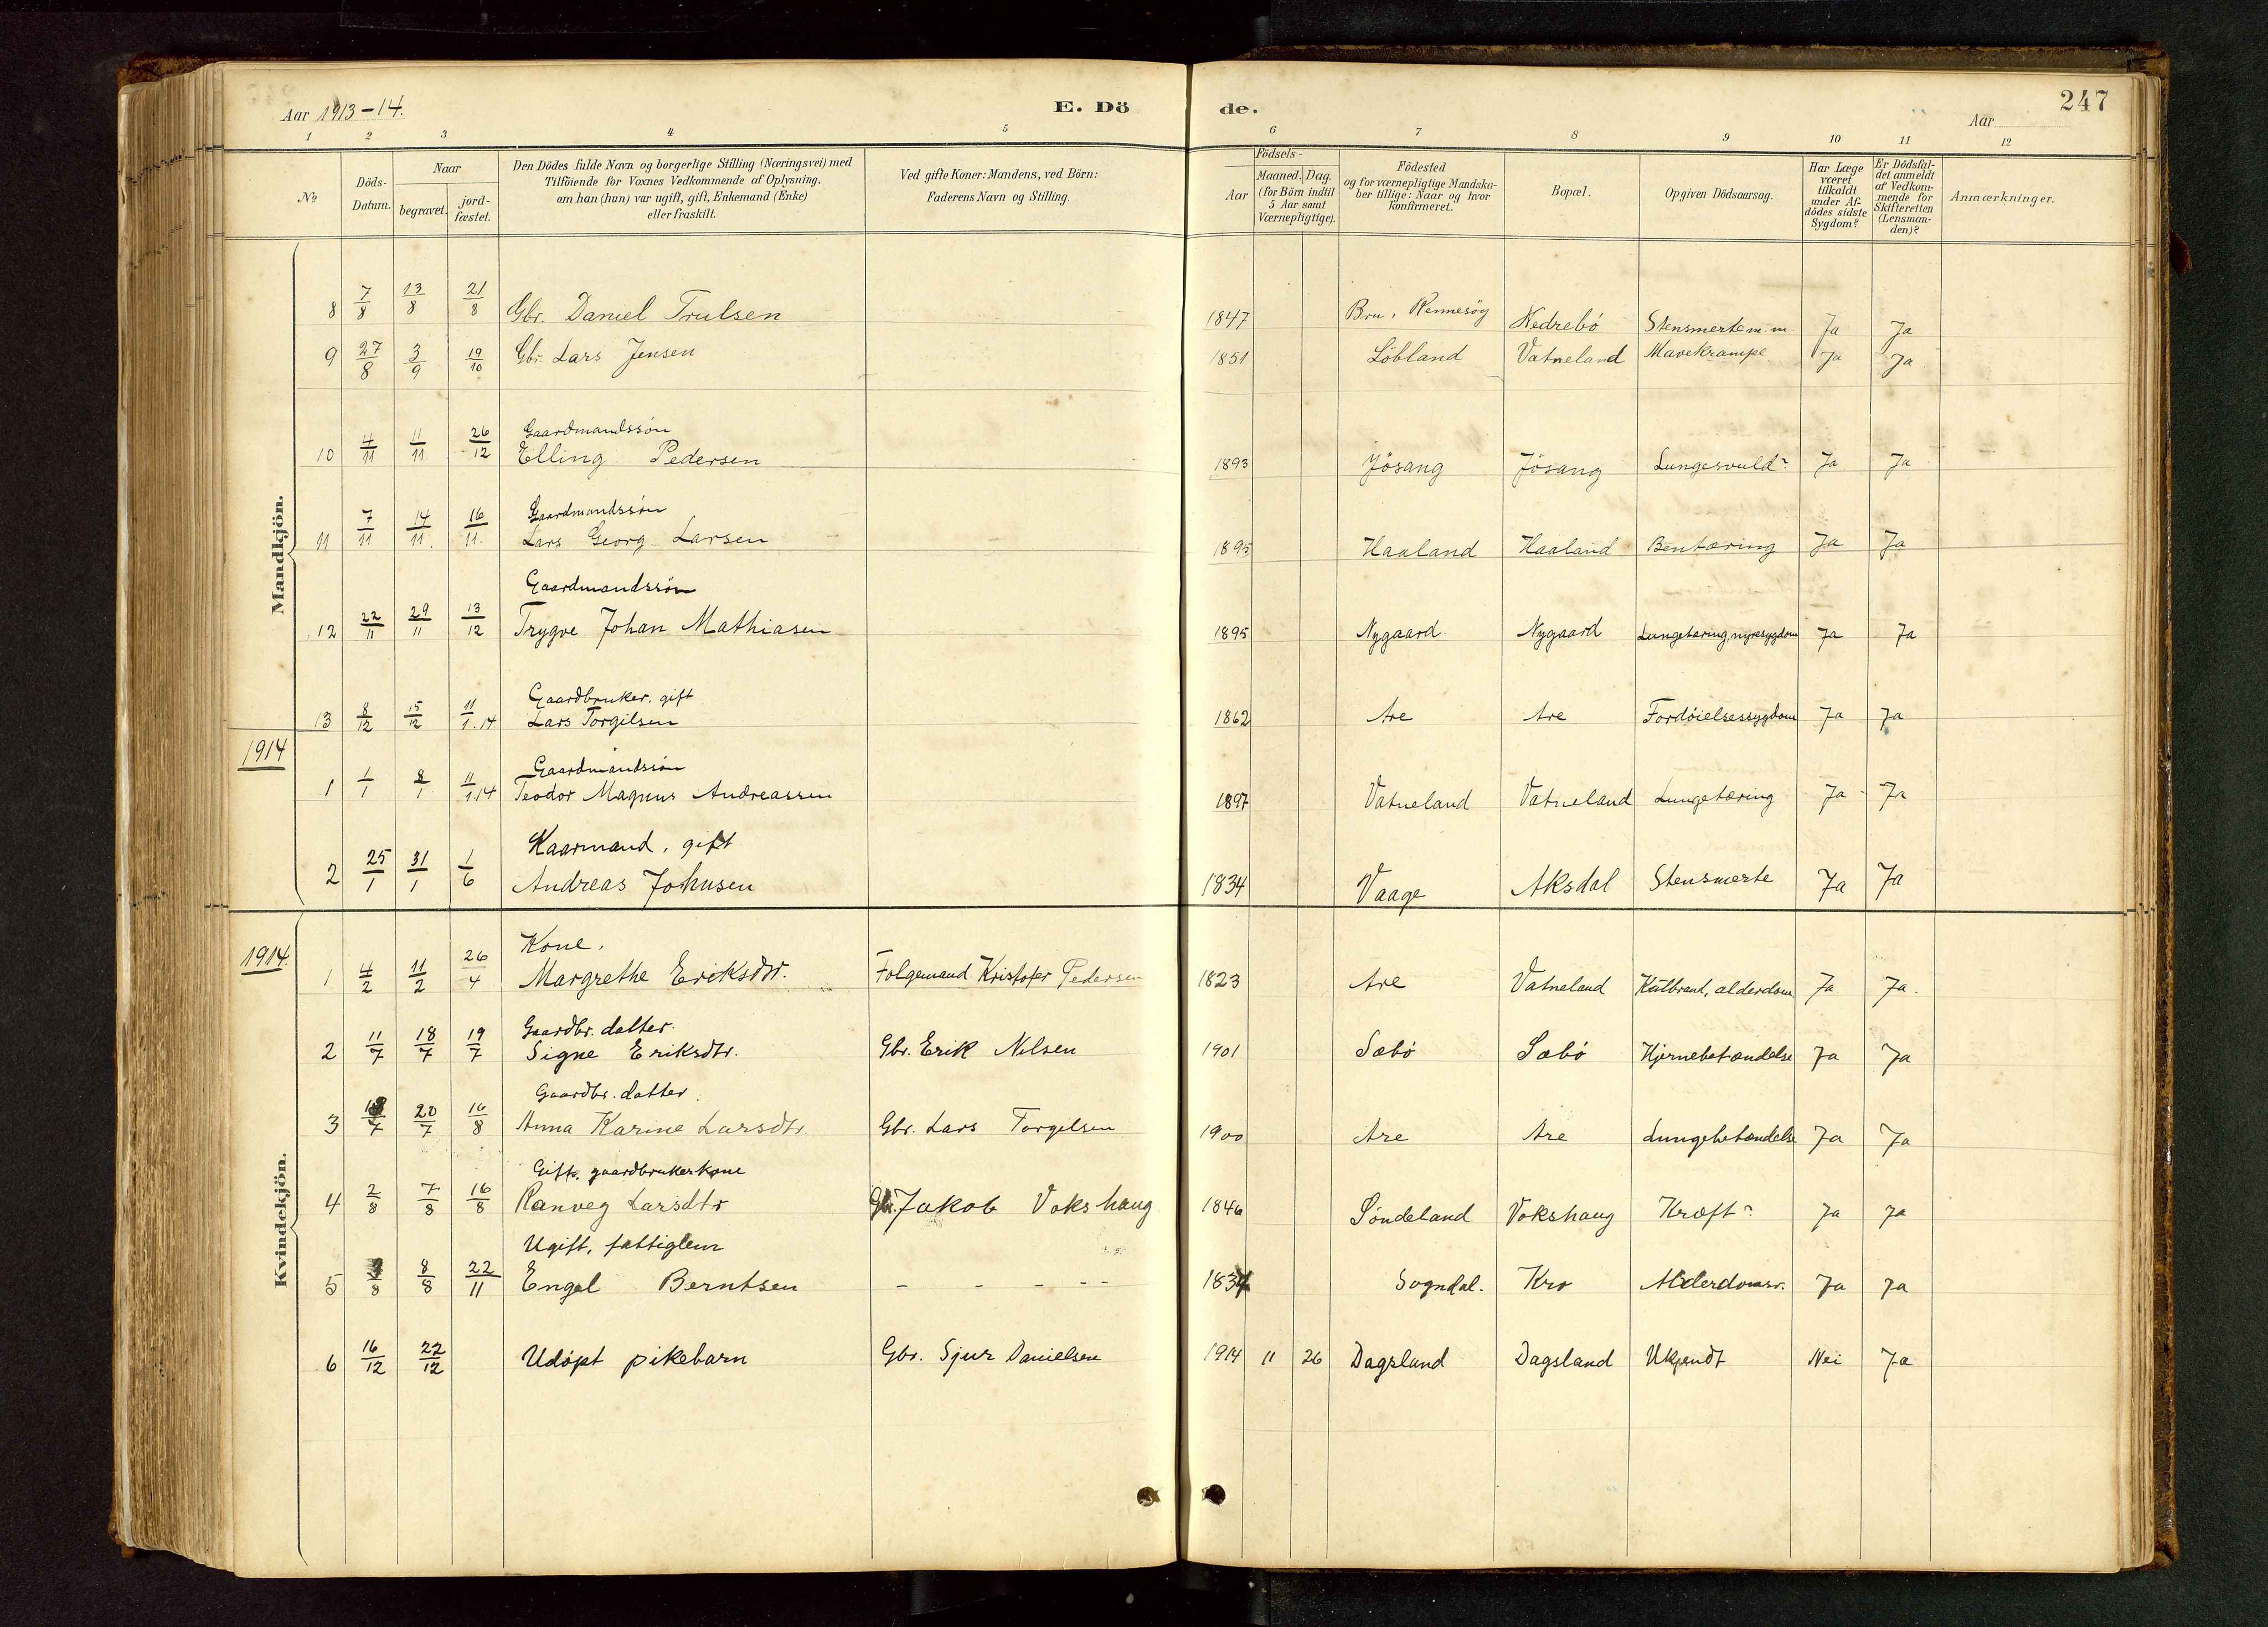 Aar 1913-14.
E. Dö
de.
Aar
247
1 2 3 4 5 6 7 8 9 10 11 12
No
Döds-Datum.
Naar
begravet.
jord-fæstet.
Den Dödes fulde Navn og borgerlige Stilling (Næringsvei) med
Tilföiende for Voxnes Vedkommende af Oplysning,
om han (hun) var ugift, gift, Enkemand (Enke)
eller fraskilt.
Ved gifte Koner: Mandens, ved Börn:
Faderens Navn og Stilling.
Födsels-
Aar
Maaned. Dag.
(for Börn indtil
5 Aar samt
Værnepligtige).
Födested
og for værnepligtige Mandska-
ber tillige: Naar og hvor
konfirmeret.
Bopæl.
Opgiven Dödsaarsag.
Har Læge
været
tilkaldt
under Af-
dödes sidste
Sygdom?
Er Dödsfal-
det anmeldt
af Vedkom-
mende for
Skifteretten
(Lensman-
den)?
Anmærkninger.
Mandkjön.
8 7/8 13/8 21/8 Gbr. Daniel Trulsen 1847 Bru, Rennesöy Nedrebö Stensmerte m. m. Ja Ja
9 27/8 3/9 19/10 Gbr. Lars Jensen 1851 Löbland Vatneland Mavekrampe Ja Ja
Gaardmandssön
10 4/11 11/11 26/12 Elling Pedersen 1893 Jösang Jösang Lungesvuld? Ja Ja
Gaardmandssön
11 7/11 14/11. 16/11. Lars Georg Larsen 1895 Haaland Haaland Bentæring Ja Ja
Gaardmandssön
12 22/11 29/11 13/12 Trygve Johan Mathiasen 1895 Nygaard Nygaard Lungetæring, nyresygdom Ja Ja
Gaardbruker. gift
13 8/12 15/12 11/1.14 Lars Torgilsen 1862 Are Are Fordöielsessygdom Ja Ja
1914
Gaardmandssön
1 1/1 8/1 11/1.14 Teodor Magnus Andreassen 1897 Vatneland Vatneland Lungetæring Ja Ja
Kaarmand, gift
2 25/1 31/1 1/6 Andreas Johnsen 1834 Vaage Aksdal Stensmerte Ja Ja
1914.
Kvindekjön.
Kone.
1 4/2 11/2 26/4 Margrethe Eriksdtr. Folgemand Kristofer Pedersen 1823 Are Vatneland Kulbrand, alderdom Ja Ja.
Gaardbr. datter.
2 11/7 18/7 19/7 Signe Eriksdtr. Gbr. Erik Nilsen 1901 Sæbö Sæbö Hjernebetændelse Ja Ja
Gaardbr. datter.
3 20/7 16/8 Anna Karine Larsdtr. Gbr. Lars Torgilsen 1900 Are Are Lungebetændelse Ja Ja
Gift, gaardbrukerkone
4 2/8 7/8 16/8 Ranveg Larsdtr Gbr. Jakob Vokshaug 1846 Söndeland Vokshaug Kræft? Ja Ja
Ugift, fattiglem
5 8/8 22/11 Engel Berntsen - - - - - 1834 Sogndal. Kro Alderdomssv. Ja Ja
6 16/12 22/12 Udöpt pikebarn Gbr. Sjur Danielsen 1914 11 26 Dagsland Dagsland Ukjendt Nei Ja